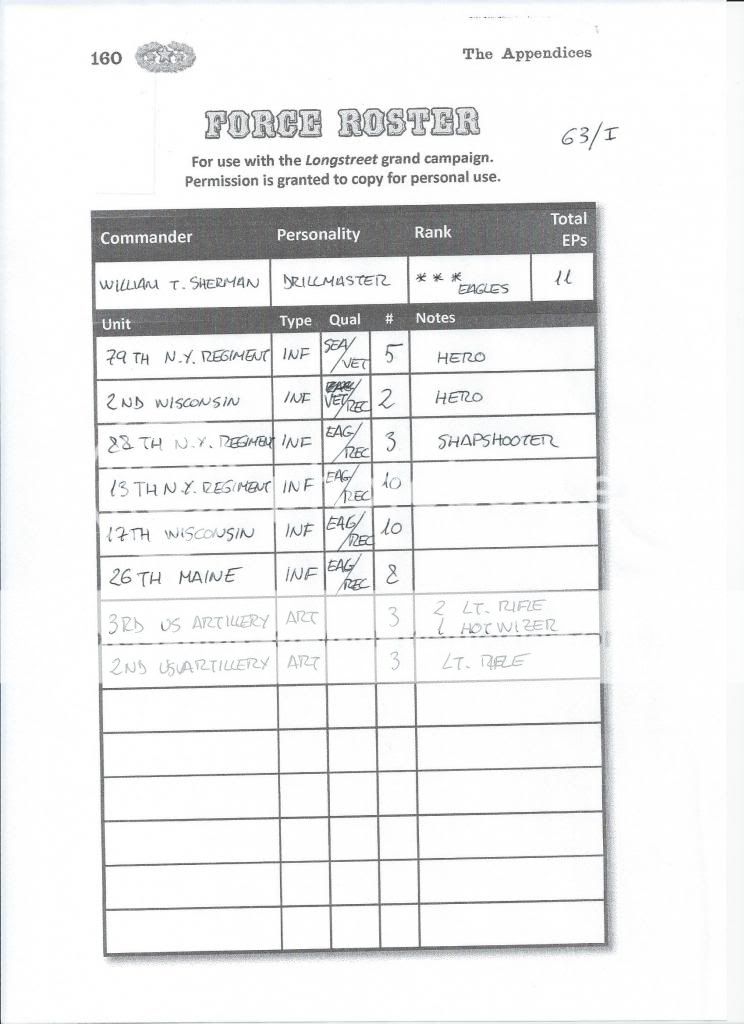 160
The Appendices
FORCE ROSTER
63/I
For use with the Longstreet grand campaign.
Permission is granted to copy for personal use.
Commander Personality Rank Total EPs
WILLIAM T. SHERMAN DRILLMASTER *** EAGLES 11
Unit Type Qual # Notes
79 TH N.Y. REGIMENT INF SEA/VET 5 HERO
2ND WISCONSIN INF VET/REC 2 HERO
88 TH N.Y. REGIMENT INF EAG/REC 3 SHAPSHOOTER
13 TH N.Y. REGIMENT INF EAG/REC 10
17TH WISCONSIN INF EAG/REC 10
26 TH MAINE INF EAG/REC 8
3RD US ARTILLERY ART 3 2 LT. RIFLE
1 HOTWIZER
2ND US ARTILLERY ART 3 LT. RIFLE